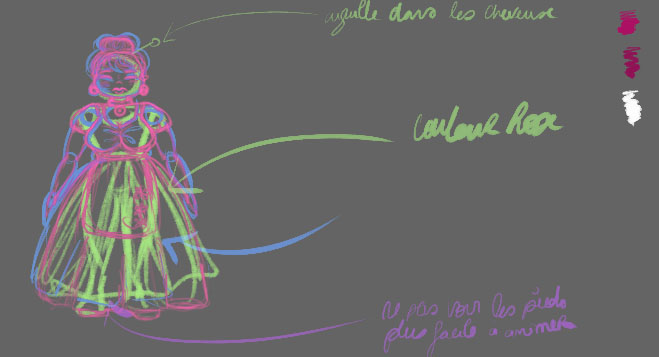 aiguille dans les cheveuse
Couleur Rose
ne pas voir les pieds
plus facile a animer